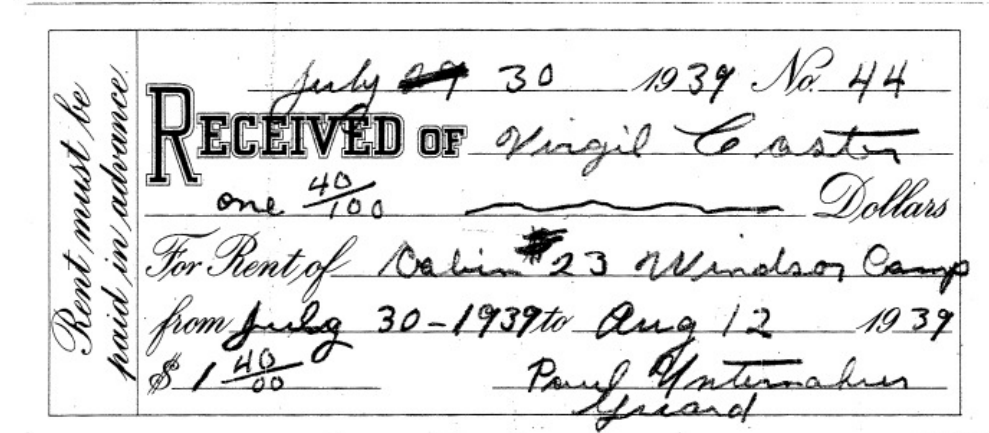 Rent must be
paid in advance
July 30 1939 No. 44
RECEIVED OF Virgil Caster
one 40/100 Dollars
For Rent of Cabin # 23 Windsor Camp
from July 30-1939 to Aug 12 1939
$ 1 40/00
Paul
Guard